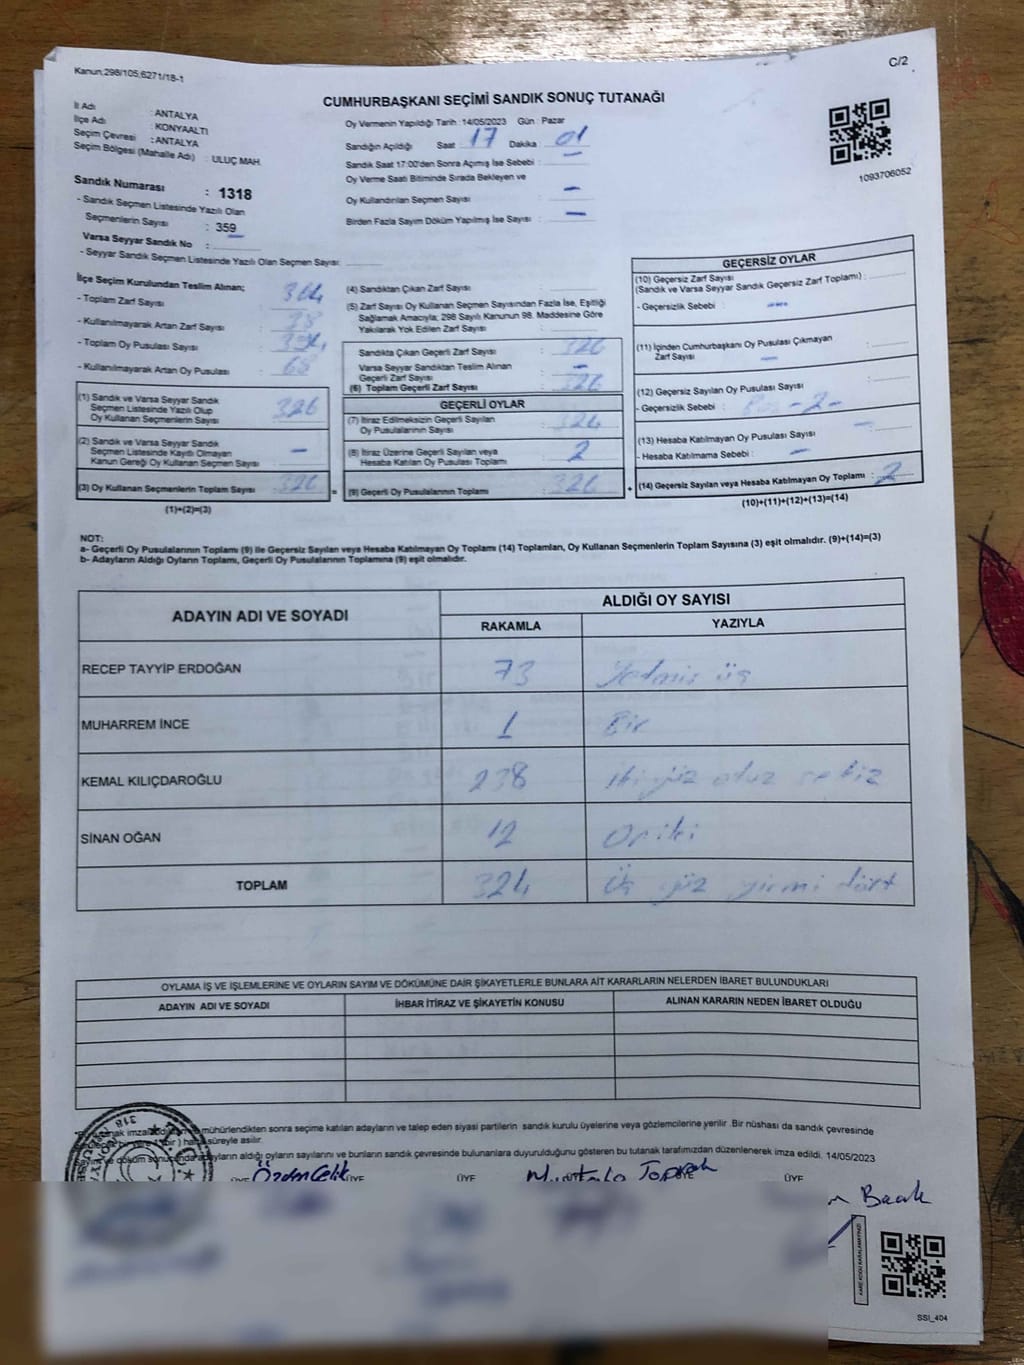 Kanun;298/105;6271/18-1
C/2
CUMHURBAŞKANI SEÇİMİ SANDIK SONUÇ TUTANAĞI
İl Adı : ANTALYA
İlçe Adı : KONYAALTI
Seçim Çevresi : ANTALYA
Seçim Bölgesi (Mahalle Adı) : ULUÇ MAH.
Sandık Numarası : 1318
- Sandık Seçmen Listesinde Yazılı Olan
Seçmenlerin Sayısı : 359
Varsa Seyyar Sandık No : -
- Seyyar Sandık Seçmen Listesinde Yazılı Olan Seçmen Sayısı:
Oy Vermenin Yapıldığı Tarih : 14/05/2023 Gün : Pazar
Sandığın Açıldığı Saat : 17 Dakika : 01
Sandık Saat 17:00'den Sonra Açılmış İse Sebebi : -
Oy Verme Saati Bitiminde Sırada Bekleyen ve
Oy Kullandırılan Seçmen Sayısı : -
Birden Fazla Sayım Döküm Yapılmış İse Sayısı : -
1093706052
İlçe Seçim Kurulundan Teslim Alınan;
- Toplam Zarf Sayısı :
- Kullanılmayarak Artan Zarf Sayısı :
- Toplam Oy Pusulası Sayısı :
- Kullanılmayarak Artan Oy Pusulası : 68
(1) Sandık ve Varsa Seyyar Sandık
Seçmen Listesinde Yazılı Olup
Oy Kullanan Seçmenlerin Sayısı : 326
(2) Sandık ve Varsa Seyyar Sandık
Seçmen Listesinde Kayıtlı Olmayan
Kanun Gereği Oy Kullanan Seçmen Sayısı : -
(3) Oy Kullanan Seçmenlerin Toplam Sayısı : 326
(1)+(2)=(3)
=
(4) Sandıktan Çıkan Zarf Sayısı :
(5) Zarf Sayısı Oy Kullanan Seçmen Sayısından Fazla İse, Eşitliği
Sağlamak Amacıyla; 298 Sayılı Kanunun 98. Maddesine Göre
Yakılarak Yok Edilen Zarf Sayısı :
Sandıkta Çıkan Geçerli Zarf Sayısı : 326
Varsa Seyyar Sandıktan Teslim Alınan
Geçerli Zarf Sayısı : -
(6) Toplam Geçerli Zarf Sayısı : 326
GEÇERLİ OYLAR
(7) İtiraz Edilmeksizin Geçerli Sayılan
Oy Pusulalarının Sayısı : 324
(8) İtiraz Üzerine Geçerli Sayılan veya
Hesaba Katılan Oy Pusulası Toplamı : 2
(9) Geçerli Oy Pusulalarının Toplamı : 326
+
GEÇERSİZ OYLAR
(10) Geçersiz Zarf Sayısı
(Sandık ve Varsa Seyyar Sandık Geçersiz Zarf Toplamı) :
- Geçersizlik Sebebi : -
(11) İçinden Cumhurbaşkanı Oy Pusulası Çıkmayan
Zarf Sayısı : -
(12) Geçersiz Sayılan Oy Pusulası Sayısı :
- Geçersizlik Sebebi : -2-
(13) Hesaba Katılmayan Oy Pusulası Sayısı : -
- Hesaba Katılmama Sebebi : -
(14) Geçersiz Sayılan veya Hesaba Katılmayan Oy Toplamı : 2
(10)+(11)+(12)+(13)=(14)
NOT:
a- Geçerli Oy Pusulalarının Toplamı (9) ile Geçersiz Sayılan veya Hesaba Katılmayan Oy Toplamı (14) Toplamları, Oy Kullanan Seçmenlerin Toplam Sayısına (3) eşit olmalıdır. (9)+(14)=(3)
b- Adayların Aldığı Oyların Toplamı, Geçerli Oy Pusulalarının Toplamına (9) eşit olmalıdır.
ADAYIN ADI VE SOYADI
ALDIĞI OY SAYISI
RAKAMLA YAZIYLA
RECEP TAYYİP ERDOĞAN 73 Yetmiş üç
MUHARREM İNCE 1 Bir
KEMAL KILIÇDAROĞLU 238 ikiyüz otuz sekiz
SİNAN OĞAN 12 Oniki
TOPLAM 324 Üç yüz yirmi dört
OYLAMA İŞ VE İŞLEMLERİNE VE OYLARIN SAYIM VE DÖKÜMÜNE DAİR ŞİKAYETLERLE BUNLARA AİT KARARLARIN NELERDEN İBARET BULUNDUKLARI
ADAYIN ADI VE SOYADI İHBAR İTİRAZ VE ŞİKAYETİN KONUSU ALINAN KARARIN NEDEN İBARET OLDUĞU
mühürlendikten sonra seçime katılan adayların ve talep eden siyasi partilerin sandık kurulu üyelerine veya gözlemcilerine verilir. Bir nüshası da sandık çevresinde
süreyle asılır.
adayların aldığı oyların sayılarını ve bunların sandık çevresinde bulunanlara duyurulduğunu gösteren bu tutanak tarafımızdan düzenlenerek imza edildi. 14/05/2023
Özden Çelik ÜYE Mustafa Toprak ÜYE
SSİ_404